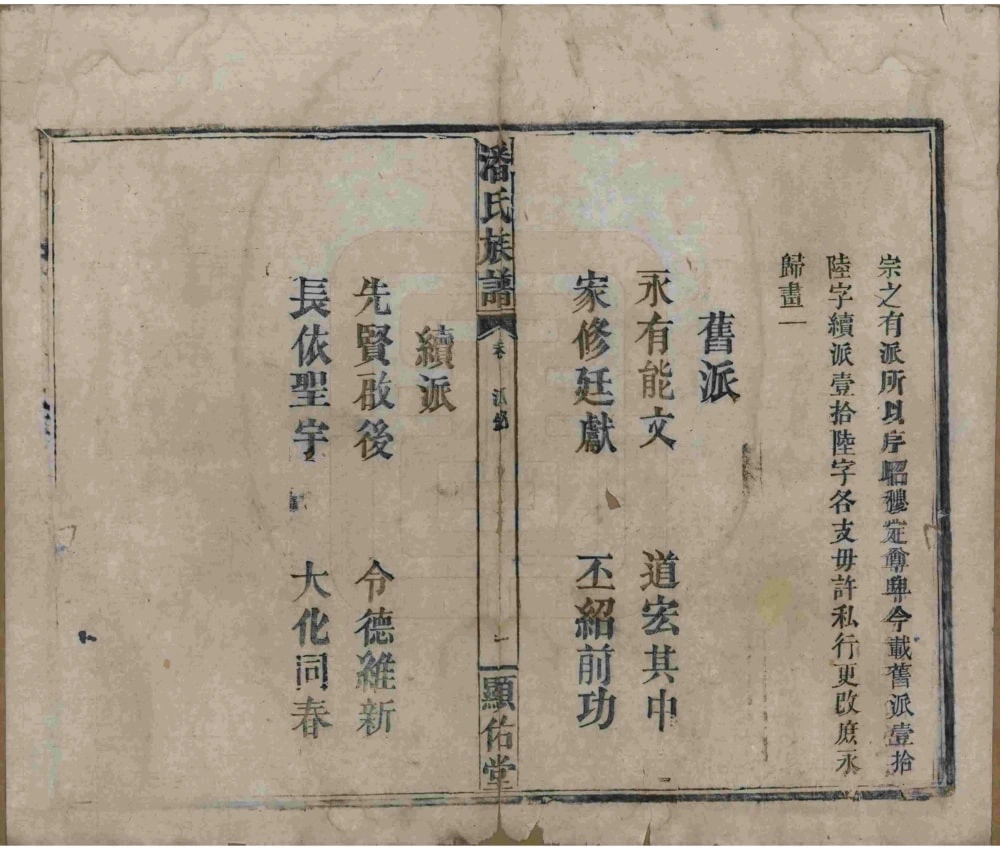 宗之有派所以序昭穆定尊卑今載舊派壹拾
陸字續派壹拾陸字各支毋許私行更改庶永
歸畫一
舊派
永有能文 道宏其中
家修廷獻 丕紹前功
潘氏族譜 卷 派 一 顯佑堂
續派
先賢啟後 令德維新
長依聖宇 大化同春